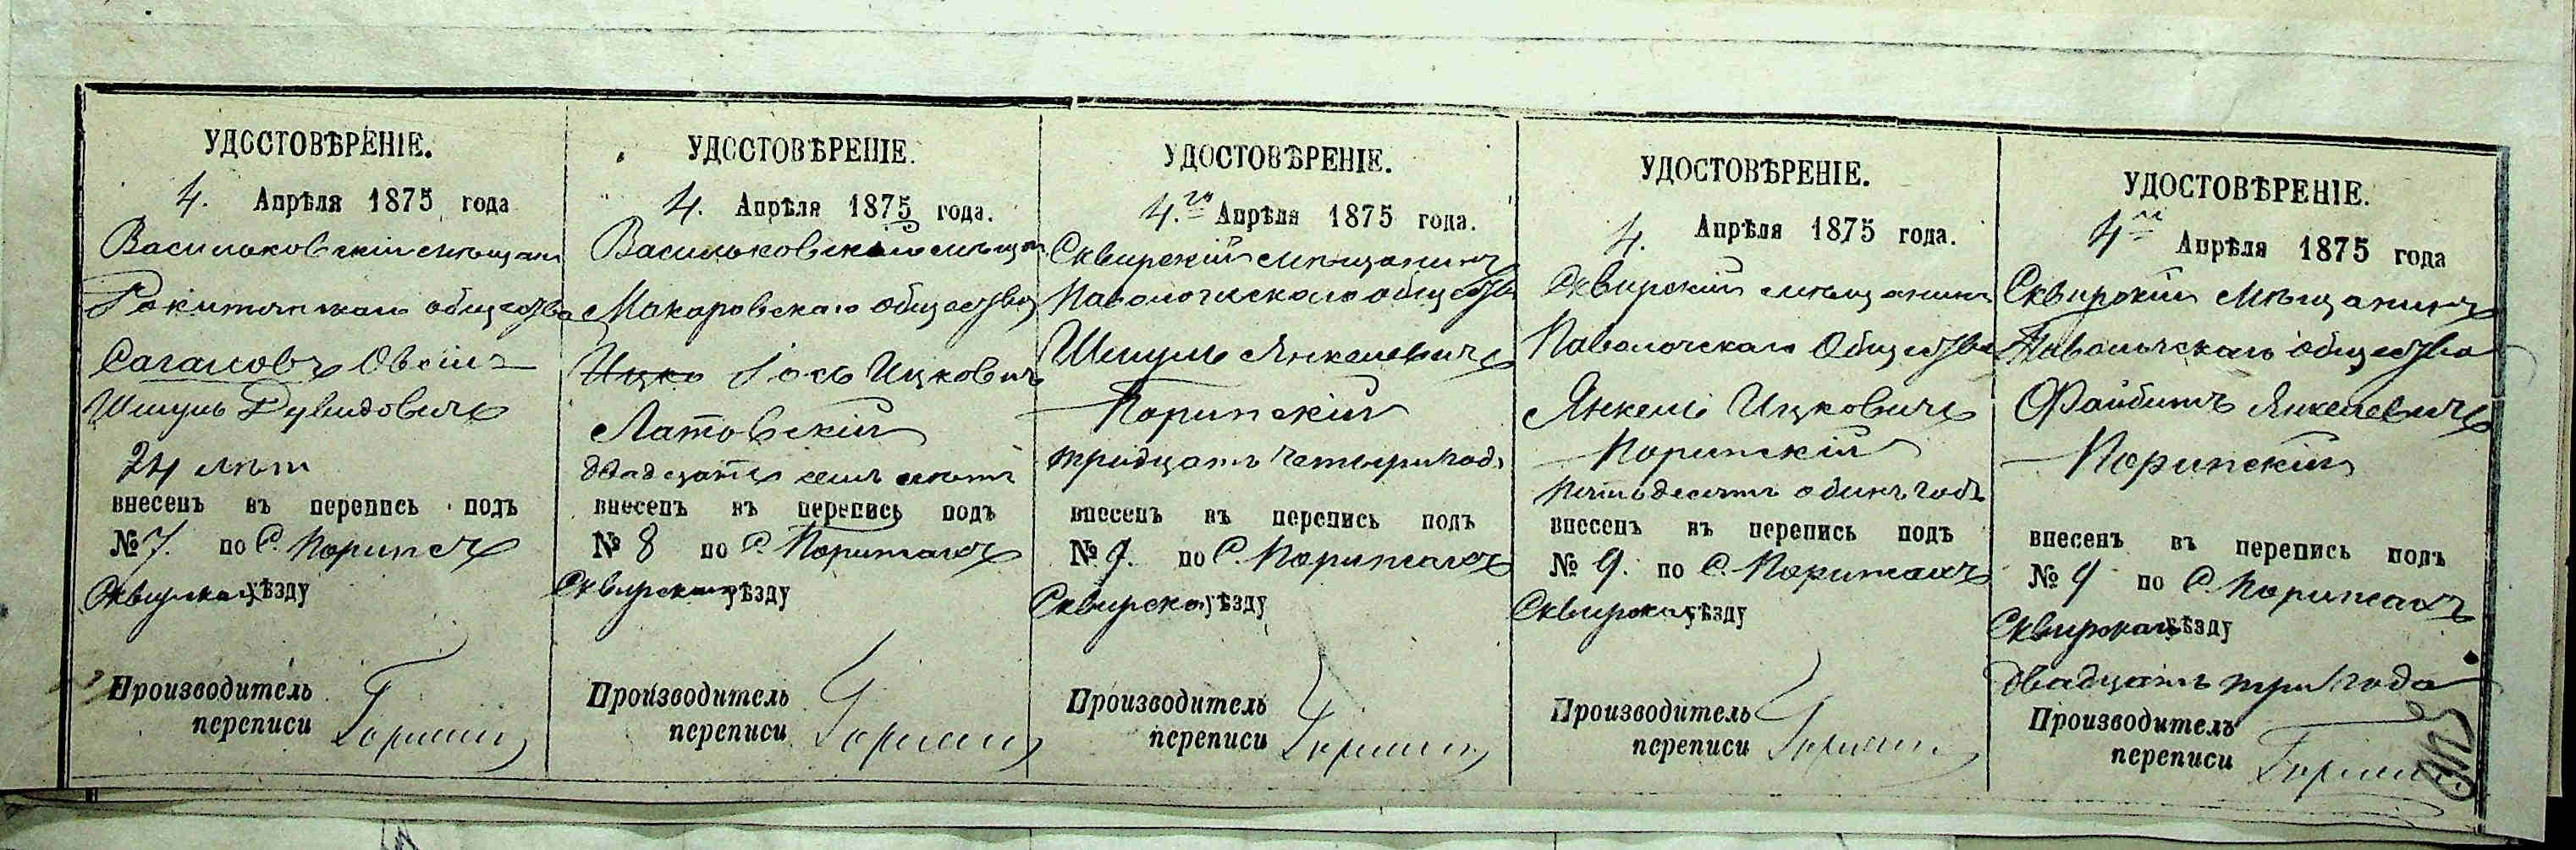 УДОСТОВѢРЕНІЕ.
4. Апрѣля 1875 года
Васильковскій мѣщан
Рокитянскаго общества
Сагаловъ Овсій
Шмуль Дувидовичъ
24 лѣт
внесенъ въ перепись подъ
№ 7. по С.
Сквирском уѣзду
Производитель
переписи
УДОСТОВѢРЕНІЕ.
4. Апрѣля 1875 года.
Васильковскаго мѣщан
Макаровскаго общества
Ицко Іось Ицковичъ
Латовскій
двадцать семь лѣтъ
внесенъ въ перепись подъ
№ 8 по С.
Сквирском уѣзду
Производитель
переписи
УДОСТОВѢРЕНІЕ.
4.го Апрѣля 1875 года.
Сквирскій мѣщанинъ
Паволочскаго общества
Шмуль Янкелевичъ
Норинскій
тридцать четыри год
внесенъ въ перепись подъ
№ 9. по С.
Сквирском уѣзду
Производитель
переписи
УДОСТОВѢРЕНІЕ.
4. Апрѣля 1875 года.
Сквирскій мѣщанинъ
Паволочскаго Общества
Янкель Ицковичъ
Норинскій
пятьдесятъ одинъ годъ
внесенъ въ перепись подъ
№ 9. по С.
Сквирском уѣзду
Производитель
переписи
УДОСТОВѢРЕНІЕ.
4 Апрѣля 1875 года
Сквирскій Мѣщанинъ
Паволочскаго общества
Файбишъ Янкелевичъ
Норинскій
внесенъ въ перепись подъ
№ 9 по С.
Сквирском уѣзду
двадцать три года
Производитель
переписи